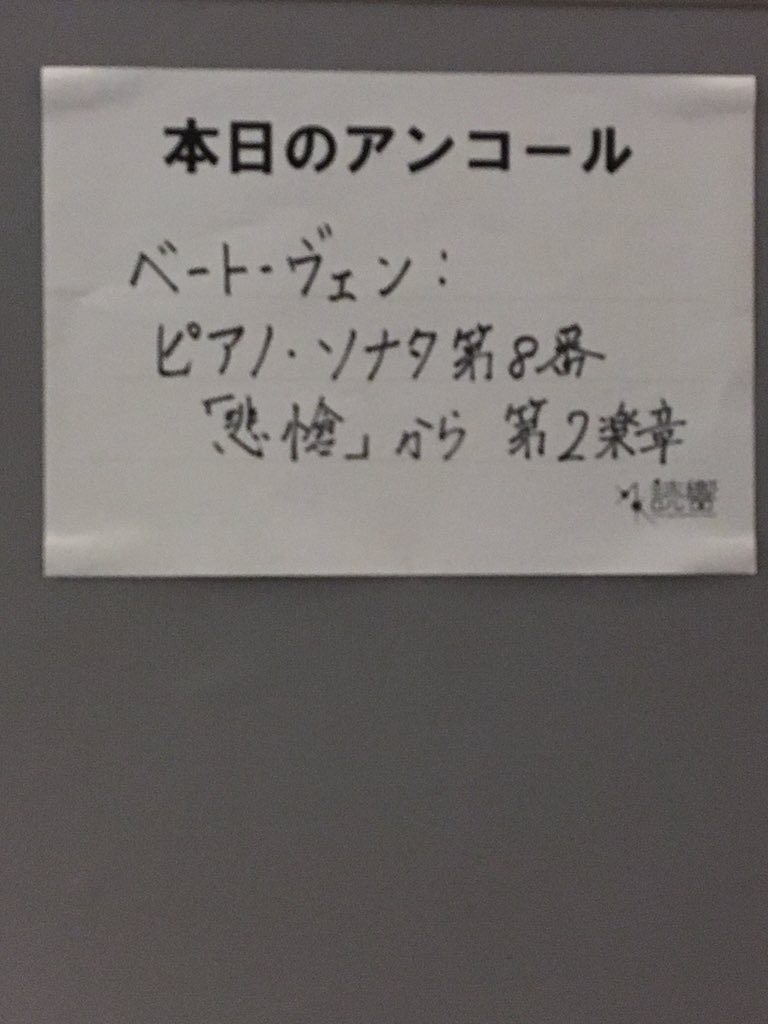 本日のアンコール
ベート・ヴェン：
ピアノ・ソナタ第8番
「悲愴」から 第2楽章
読響